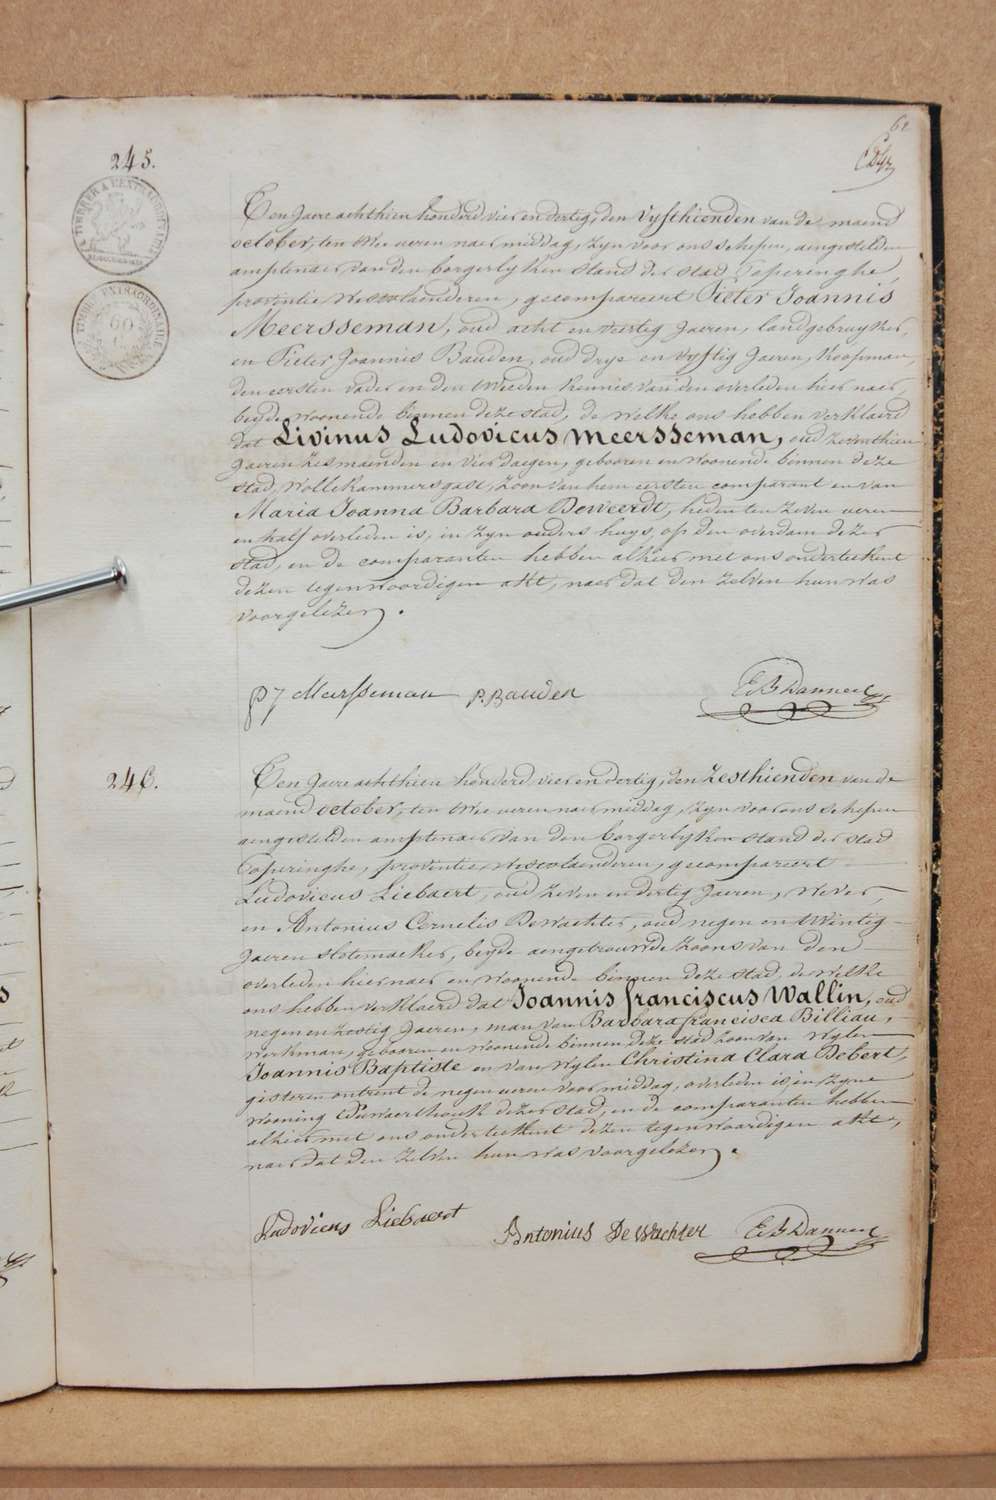 62
245.
TIMBRE A L'EXTRAORDINAIRE
TIMBRE EXTRAORDINAIRE
60
Ten Jaere achthien honderd vier en dertig, den Vyfthienden van de maend
october, ten twee ueren naer middag, zyn voor ons schepen, aengestelden
amptenaer van den borgerlyken stand der stad Poperinghe,
provintie Westvlaenderen, gecompareert Pieter Joannis
Meersseman, oud acht en veertig Jaeren, landgebruyker,
en Pieter Joannis Bauden, oud drye en vyftig Jaeren, Koopman,
den eersten vader en den tweeden kennis van den overleden hier naer,
beyde woonende binnen deze stad, de welke ons hebben verklaerd
dat Livinus Ludovicus Meersseman, oud zeventhien
Jaeren zes maenden en vier daegen, gebooren en woonende binnen deze
stad, Wollekammersgast, zoon van hem eersten comparant en van
Maria Joanna Barbara Deweerdt, heden ten zeven ueren
en half overleden is, in zyn ouders huys, op den overdam dezer
stad, en de comparanten hebben alhier met ons onderteekent
dezen tegenwoordigen akt, naer dat den zelven hun was
voorgelezen.
PJ Meersseman P. Bauden E B Danneel
246.
Ten Jaere achthien honderd vier en dertig, den Zesthienden van de
maend october, ten twee ueren naer middag, zyn voor ons schepen
aengestelden amptenaer van den borgerlyken stand der stad
Poperinghe, provintie Westvlaenderen, gecompareert
Ludovicus Liebaert, oud zeven en dertig Jaeren, Wever,
en Antonius Cornelis De Wachter, oud negen en twintig
Jaeren slotemaeker, beyde aengetrouwde zoons van den
overleden hier naer en woonende binnen deze stad, de welke
ons hebben verklaerd dat Joannis franciscus Wallin, oud
negen en zestig Jaeren, man van Barbara francisca Billiau,
Werkman, gebooren en woonende binnen deze stad zoon van wylen
Joannis Baptiste en van wylen Christina Clara Debert,
gisteren ontrent de negen ueren voor middag, overleden is, in zyne
wooning dezer stad, en de comparanten hebben
alhier met ons onderteekent dezen tegenwoordigen akt,
naer dat den zelven hun was voorgelezen.
Ludovicus Liebaert Antonius De Wachter E B Danneel